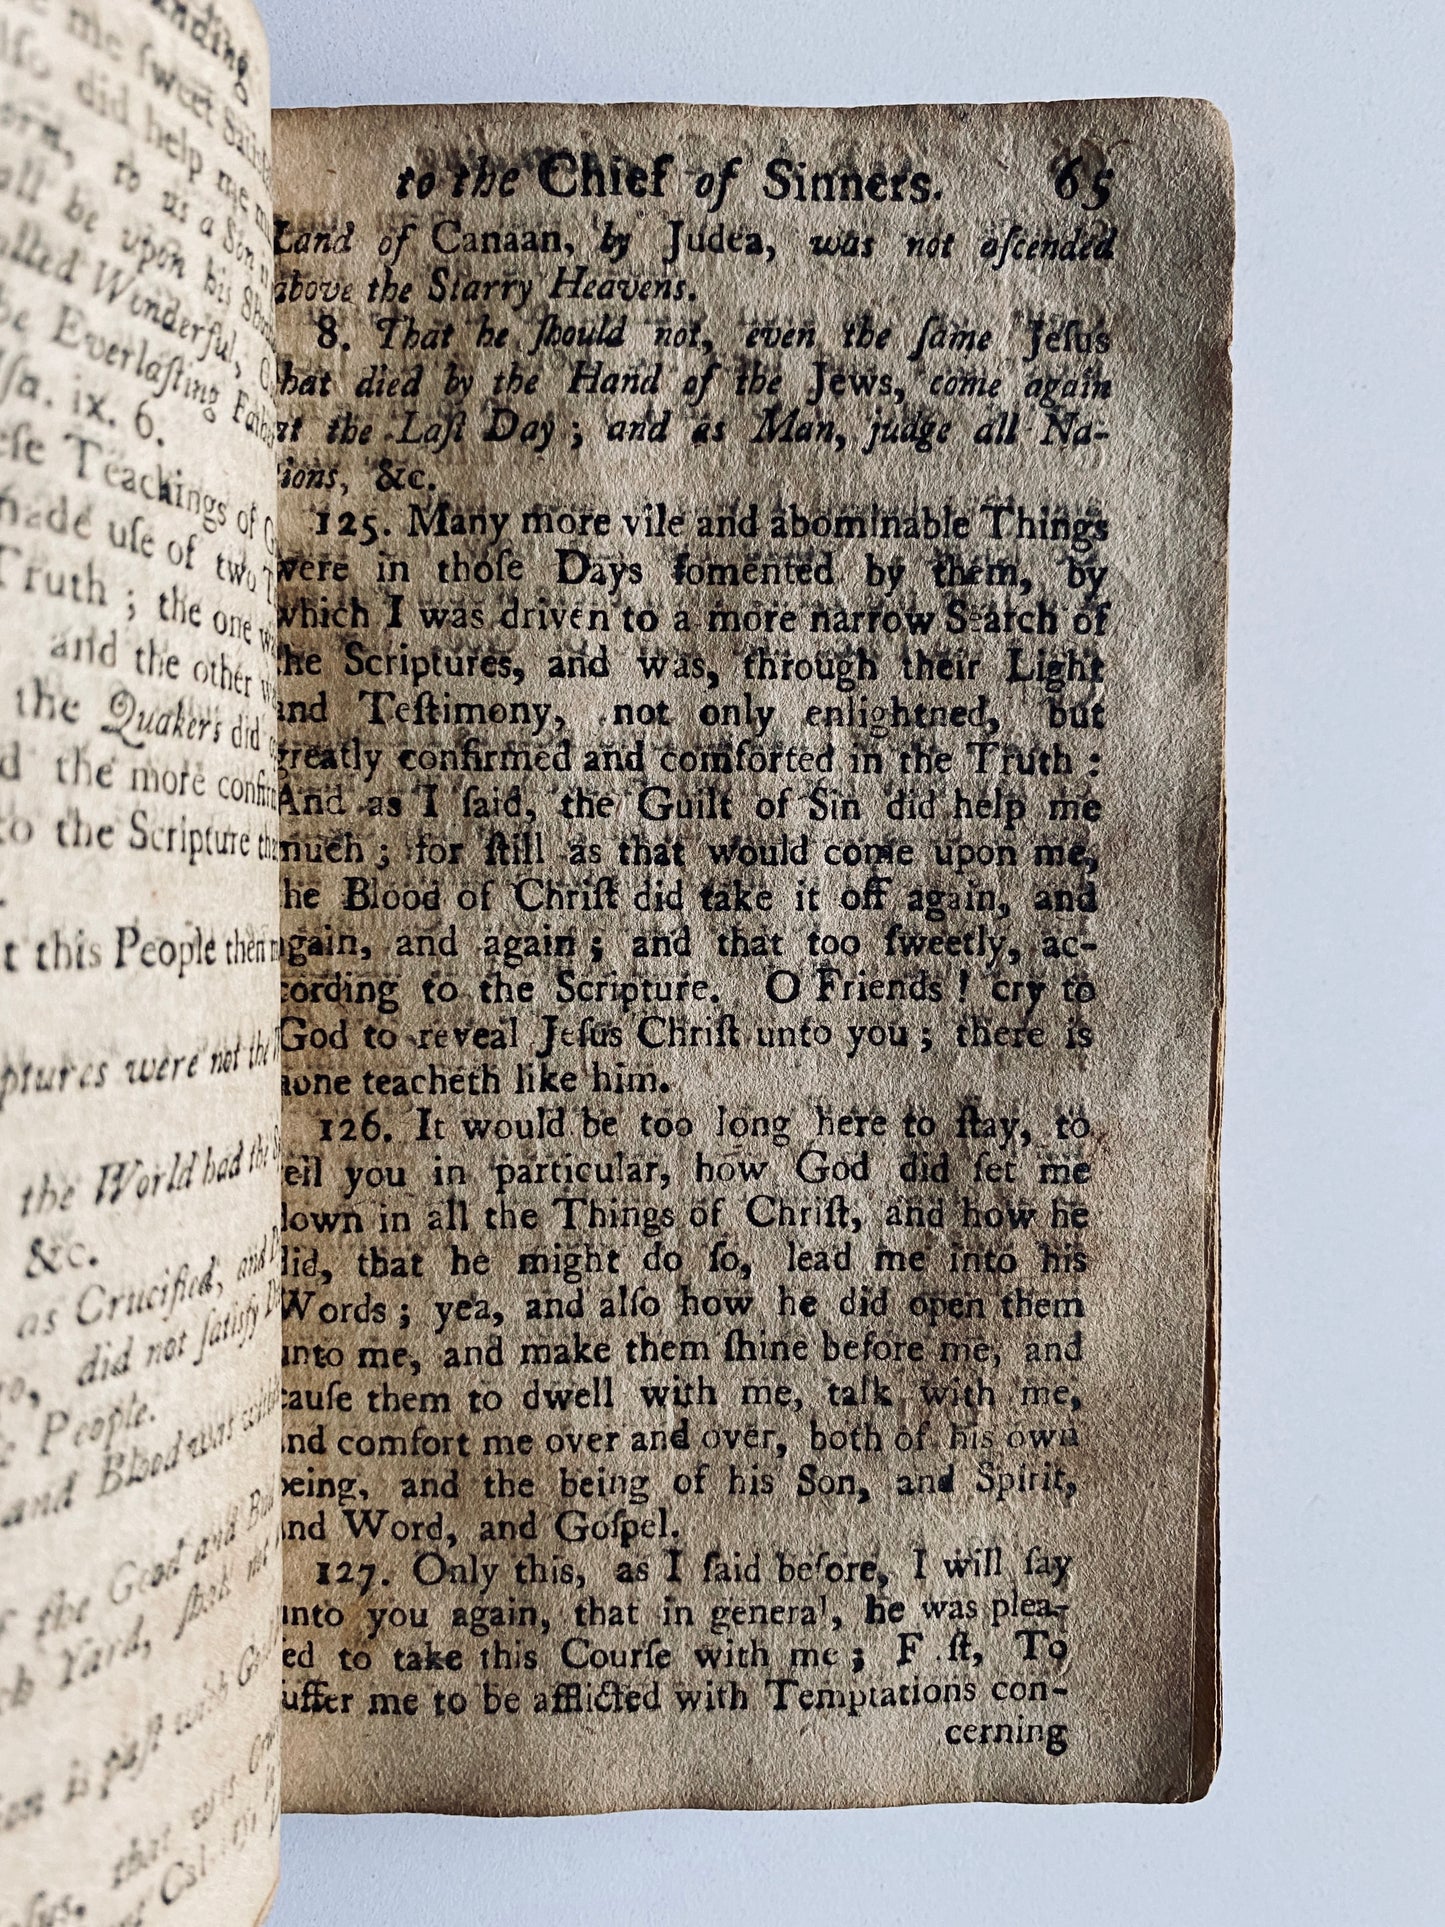 anding
me ſweet Saint
did help me m
to us a Son
ll be upon his
Wonderful,
Everlaſting
ſa. ix. 6.
Teachings of
made uſe of two
Truth ; the one
and the other
the Quakers did
the more
to the Scripture
t this People then
were not the
the World had the
&c.
as Crucified, and
did not ſatisfy
People.
and Blood was
the Good and
Yard,
is paſt
to the Chief of Sinners. 65
Land of Canaan, by Judea, was not aſcended
above the Starry Heavens.
8. That he ſhould not, even the ſame Jeſus
hat died by the Hand of the Jews, come again
at the Laſt Day ; and as Man, judge all Na-
tions, &c.
125. Many more vile and abominable Things
were in thoſe Days fomented by them, by
which I was driven to a more narrow Search of
he Scriptures, and was, through their Light
and Teſtimony, not only enlightned, but
greatly confirmed and comforted in the Truth :
And as I ſaid, the Guilt of Sin did help me
much ; for ſtill as that would come upon me,
he Blood of Chriſt did take it off again, and
again, and again ; and that too ſweetly, ac-
cording to the Scripture. O Friends ! cry to
God to reveal Jeſus Chriſt unto you ; there is
none teacheth like him.
126. It would be too long here to ſtay, to
tell you in particular, how God did ſet me
down in all the Things of Chriſt, and how he
did, that he might do ſo, lead me into his
Words ; yea, and alſo how he did open them
unto me, and make them ſhine before me, and
cauſe them to dwell with me, talk with me,
and comfort me over and over, both of his own
being, and the being of his Son, and Spirit,
and Word, and Goſpel.
127. Only this, as I ſaid before, I will ſay
unto you again, that in general, he was plea-
ed to take this Courſe with me ; F ſt, To
ſuffer me to be afflicted with Temptations con-
cerning